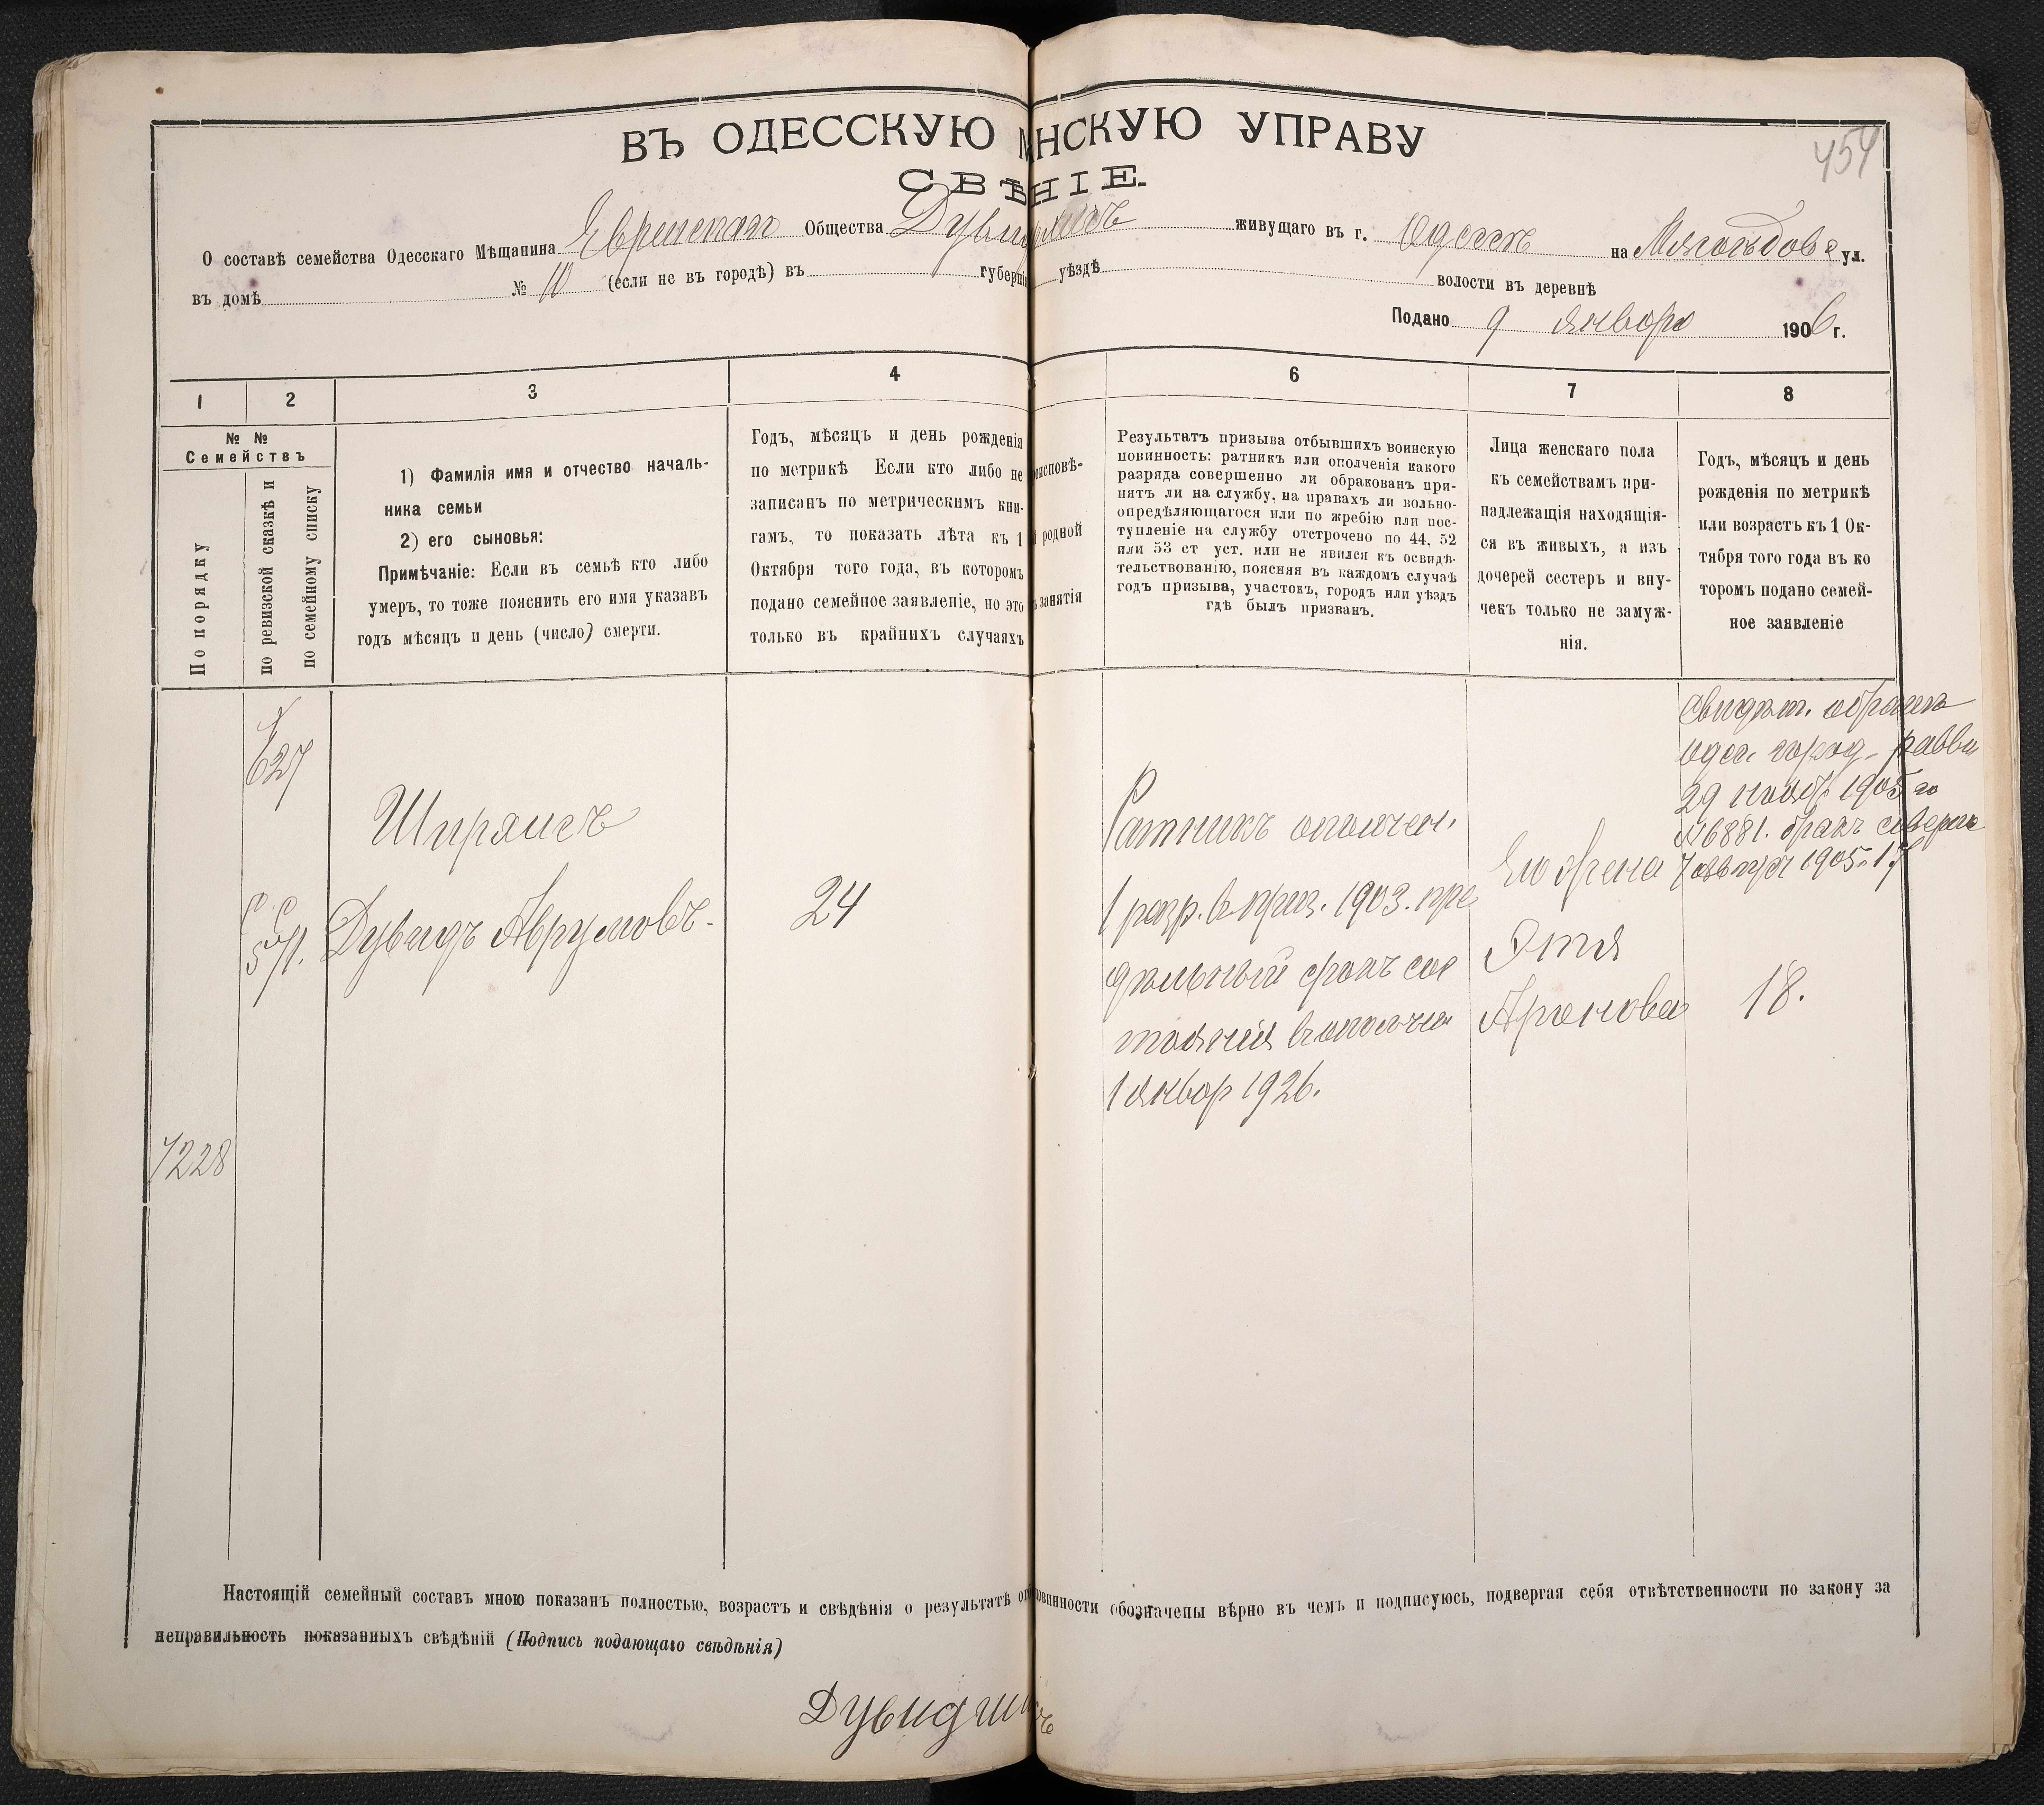 454
ВЪ ОДЕССКУЮ НСКУЮ УПРАВУ
СВѢНІЕ.
О составѣ семейства Одесскаго Мѣщанина Еврейскаго Общества живущаго въ г. Одессѣ на Мясоѣдовс. ул.
въ домѣ № 10 (если не въ городѣ) въ губерні уѣздѣ волости въ деревнѣ
Подано 9 Января 1906 г.
1 2 3 4 6 7 8
№ №
Семействъ
По порядку
по ревизской сказкѣ и
по семейному списку
1) Фамилія имя и отчество началь-
ника семьи
2) его сыновья:
Примѣчаніе: Если въ семьѣ кто либо
умеръ, то тоже пояснить его имя указавъ
годъ мѣсяцъ и день (число) смерти.
Годъ, мѣсяцъ и день рожденія
по метрикѣ Если кто либо не
записанъ по метрическимъ кни-
гамъ, то показать лѣта къ 1
Октября того года, въ которомъ
подано семейное заявленіе, но это
только въ крайнихъ случаяхъ
оисповѣ-
й родной
ъ занятія
Результатъ призыва отбывшихъ воинскую
повинность: ратникъ или ополченія какого
разряда совершенно ли обракованъ при-
нятъ ли на службу, на правахъ ли вольно-
опредѣляющагося или по жребію или пос-
тупленіе на службу отсрочено по 44, 52
или 53 ст уст. или не явился къ освидѣ-
тельствованію, поясняя въ каждомъ случаѣ
годъ призыва, участокъ, городъ или уѣздъ
гдѣ былъ призванъ.
Лица женскаго пола
къ семействамъ при-
надлежащія находящія-
ся въ живыхъ, а изъ
дочерей сестеръ и вну-
чекъ только не замуж-
нія.
Годъ, мѣсяцъ и день
рожденія по метрикѣ
или возрастъ къ 1 Ок-
тября того года въ ко
торомъ подано семей-
ное заявленіе
627
Ширянсъ
571. Дувидъ Аврумовъ.
24
7228
Ратникъ ополчен.
1 разр. въ приз. 1903. пре
дѣльный срокъ сос
тоянія въ ополчен
1 январ 1926.
Его жена
Этя
Аронова
18.
Свидѣт. о бракѣ
одес. город. равви
29 нояб. 1905 го
№ 6881. бракъ соверш
1905. г.
Настоящій семейный составъ мною показанъ полностью, возрастъ и свѣдѣнія о результатѣ от повинности обозначены вѣрно въ чемъ и подписуюсь, подвергая себя отвѣтственности по закону за
неправильность показанныхъ свѣдѣній (Подпись подающаго свѣдѣнія)
Дувид